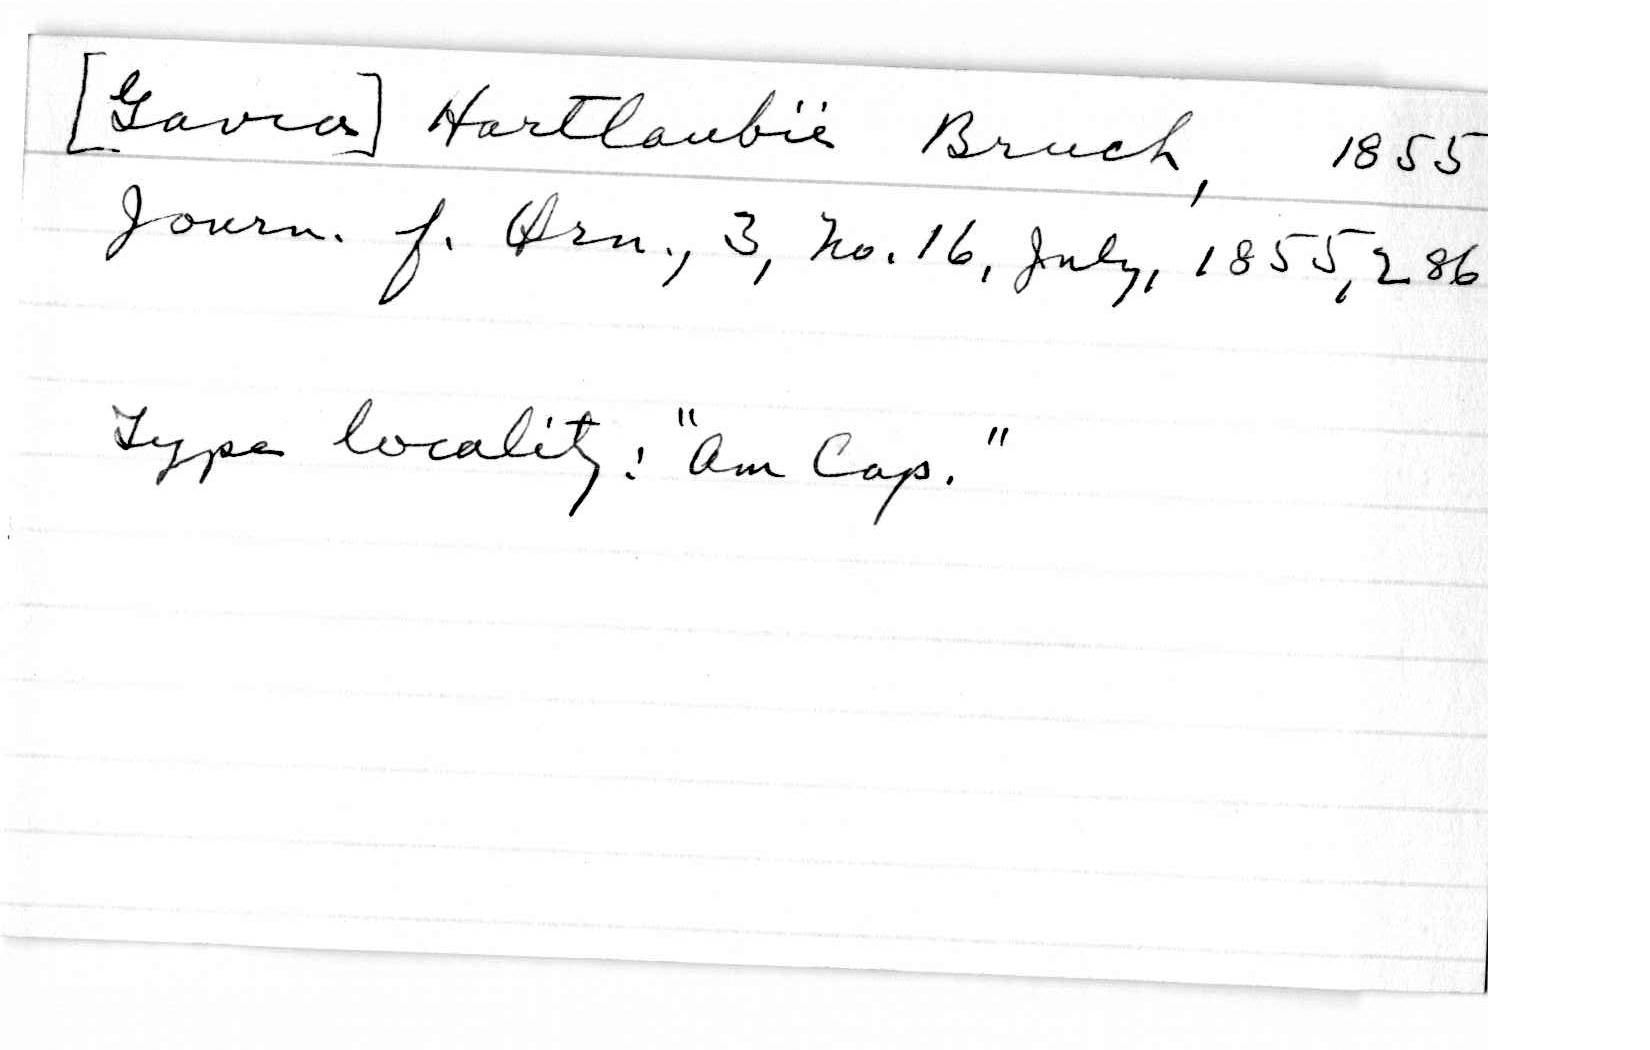 [Gavia] Hartlaubii Bruch, 1855
Journ. f. Orn., 3, No. 16, July, 1855, 286
Type locality: "Am Cap."